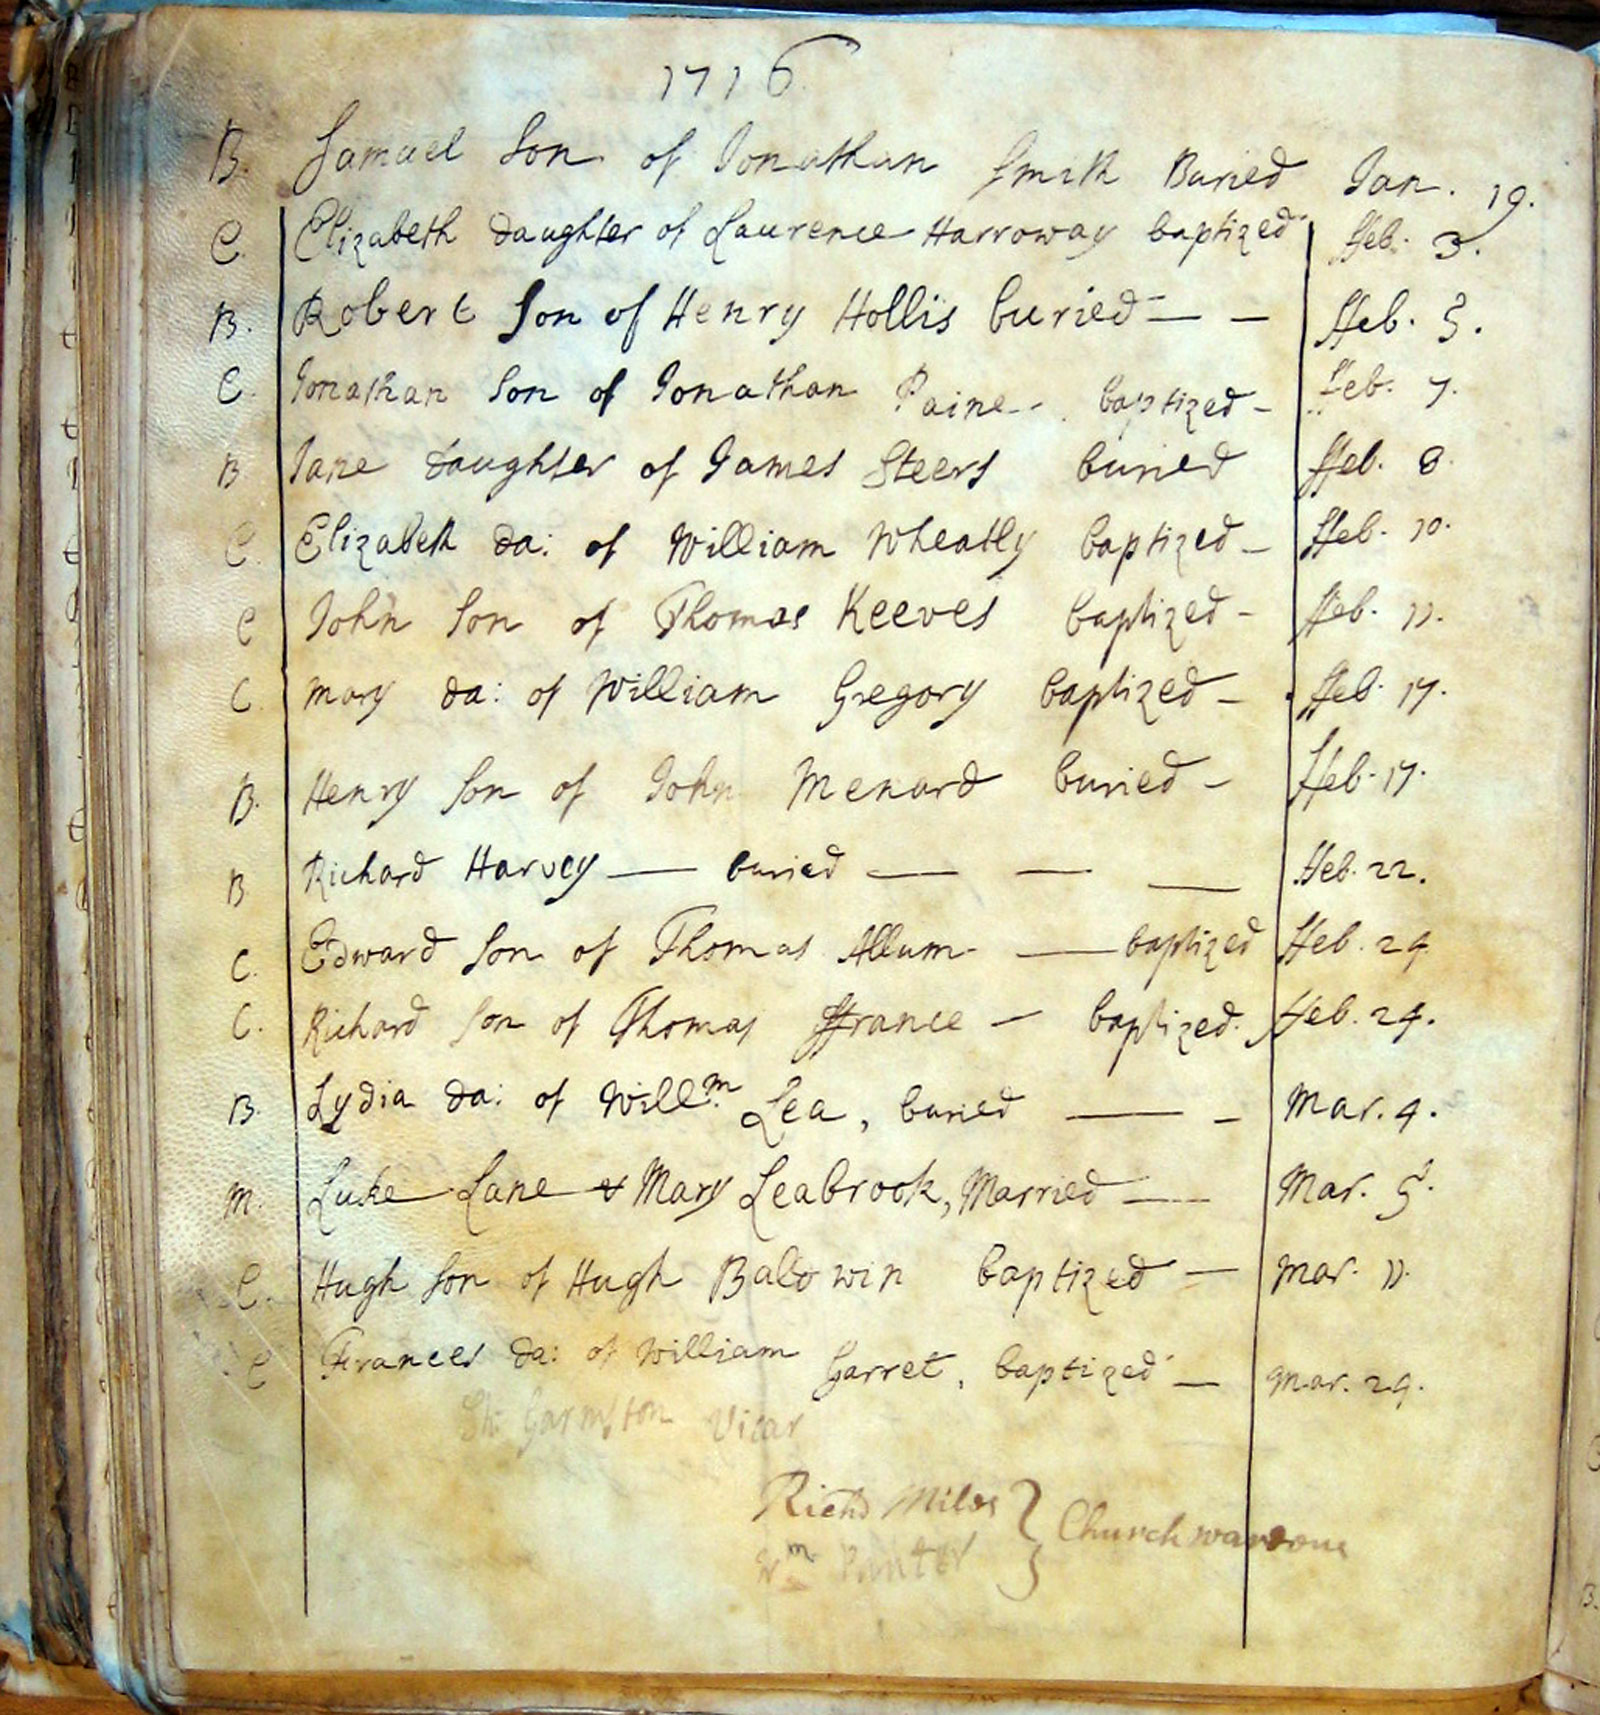 1716
B. Samuel Son of Jonathan Smith Buried Jan. 19.
C. Elizabeth daughter of Laurence Harroway baptized Feb. 3.
B. Robert Son of Henry Hollis buried — — ffeb. 5.
C. Jonathan Son of Jonathan Paine - baptized - Feb. 7.
B Jane daughter of James Steers buried ffeb. 8.
C. Elizabeth da: of William Wheatly baptized - ffeb. 10.
C John Son of Thomas Keeves baptized - ffeb. 11.
C. Mary da: of William Gregory baptized - ffeb. 17.
B. Henry Son of John Menard buried - ffeb. 17.
B Richard Harvey — buried — — — ffeb. 22.
C. Edward Son of Thomas Allum — baptized ffeb. 24
C. Richard Son of Thomas ffrance — baptized. ffeb. 24.
B. Lydia da: of Willm. Lea, buried — - Mar. 4.
M. Luke Lane & Mary Seabrook, Married — Mar. 5.
C. Hugh Son of Hugh Baldwin baptized — Mar. 11.
C Frances da: of William Garret, baptized — Mar. 24.
Garmston Vicar
Richd Miles } Churchwardons
Wm